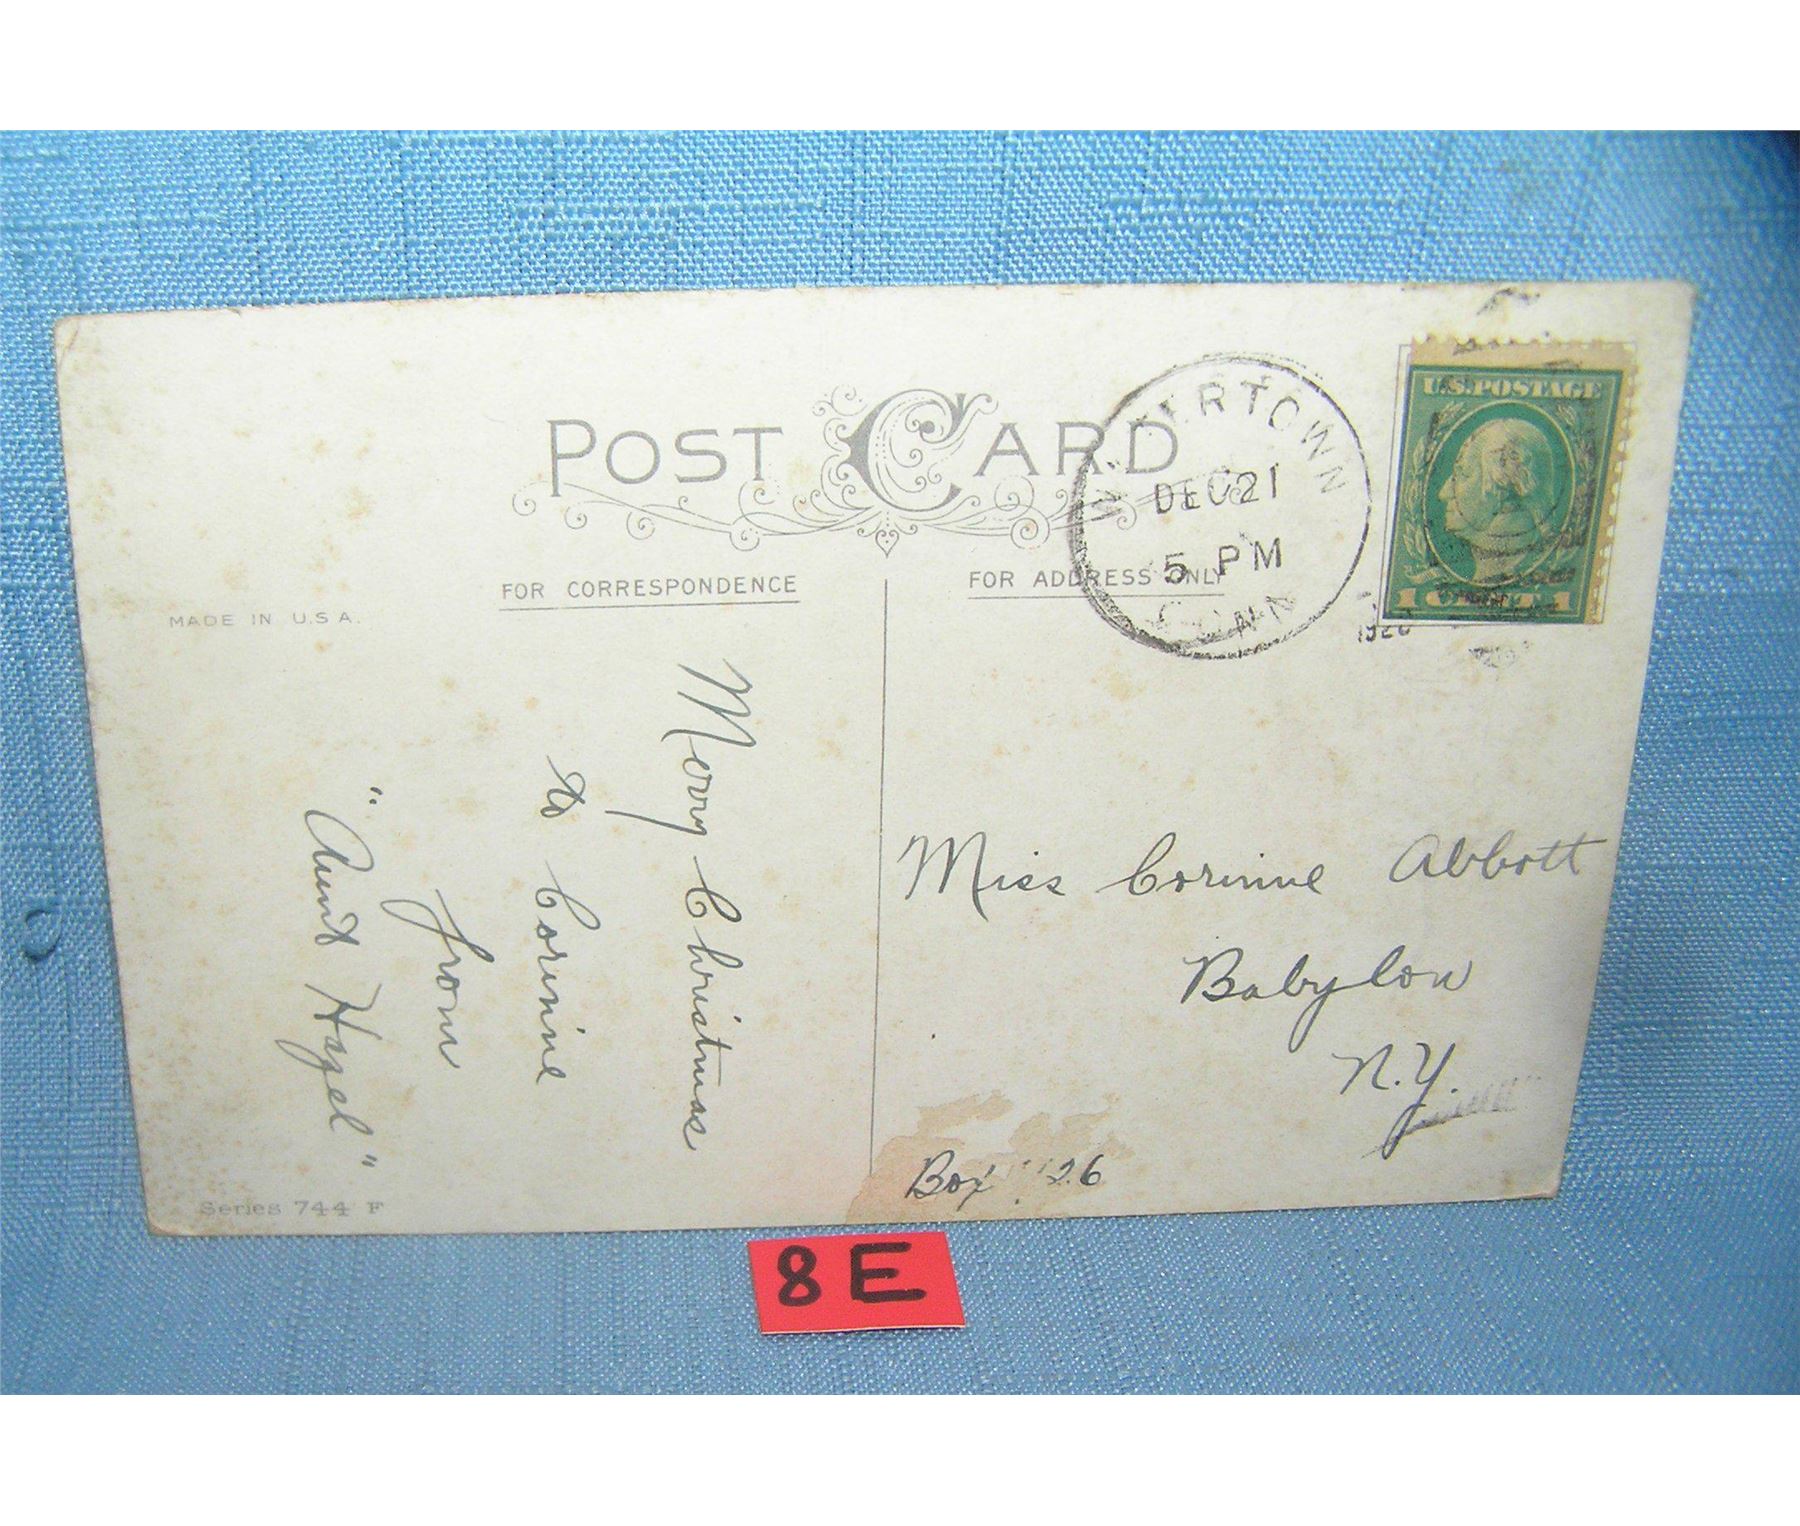 POST CARD
WATERTOWN
DEC 21
5 PM
CONN
U.S. POSTAGE
1 CENT 1
FOR CORRESPONDENCE
FOR ADDRESS ONLY
MADE IN U.S.A.
Merry Christmas
to Corinne
from
"Aunt Hazel"
Miss Corinne Abbott
Babylon
N.Y.
Box 26
Series 744 F
8E